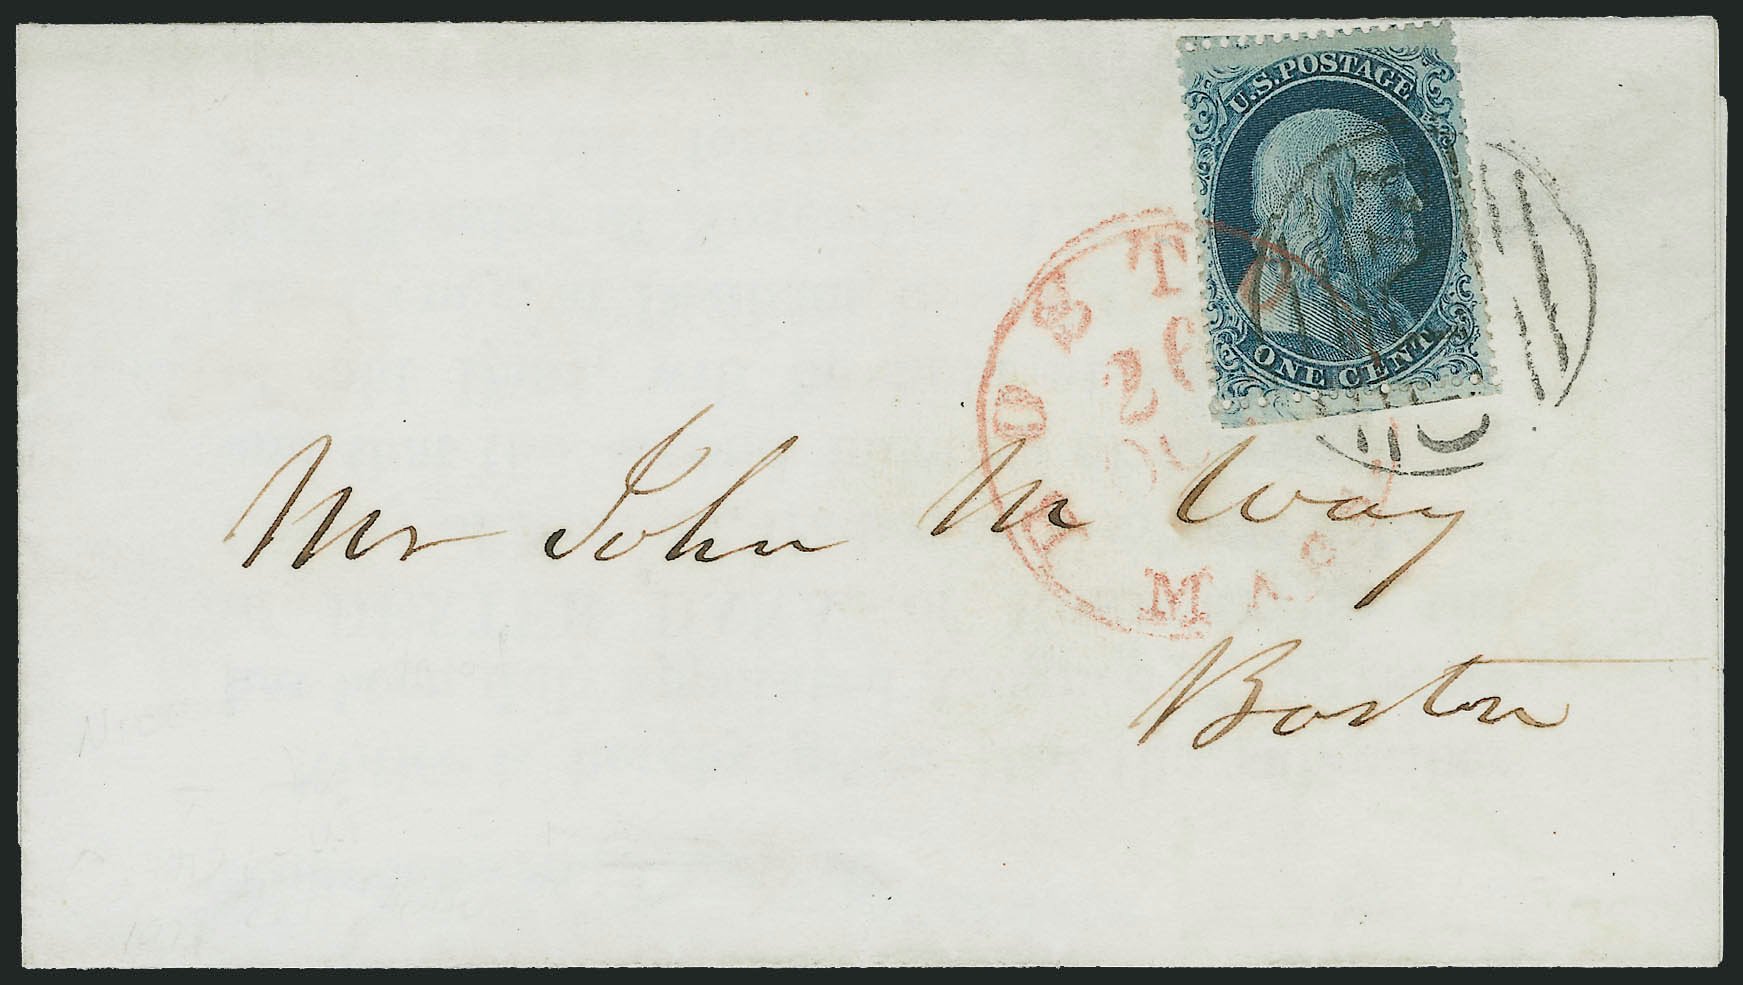 U.S. POSTAGE
ONE CENT.
BOSTO
26
MASS
Mr John M Way
Boston